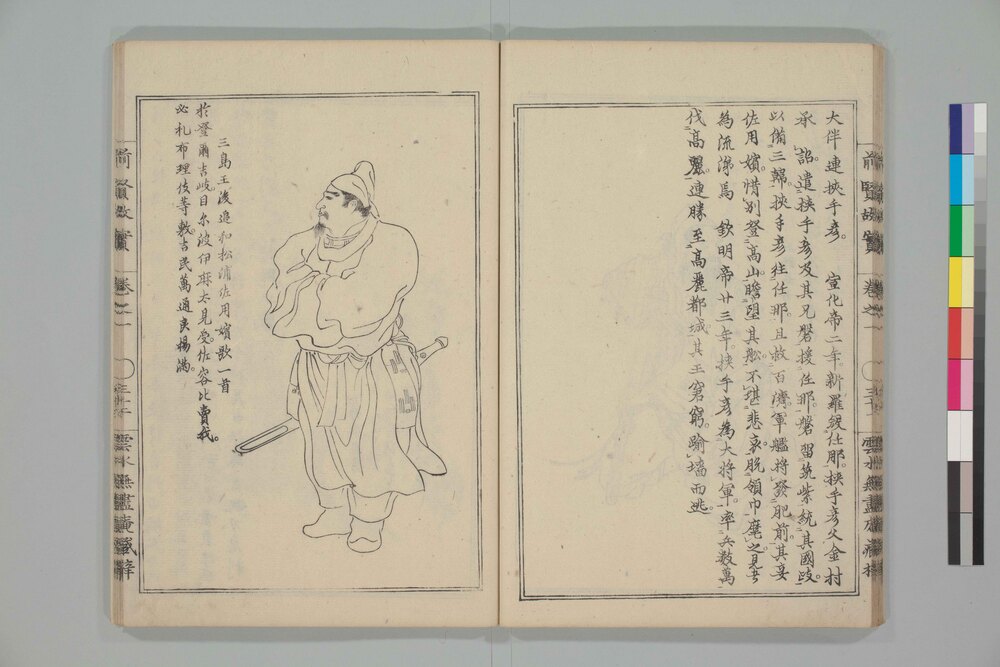 大伴連挾手彦。　宣化帝二年。新羅綏仕那。挾手彦父金村
承　詔。遣挾手彦及其兄磐援任那。磐留筑紫統其國政。
以備三韓。挾手彦往任那。且救百濟。軍艦將發肥前。其妾
佐用嬪惜別登高山。瞻望其船。不堪悲哀。脱領巾麾之。見者
為流涕焉　欽明帝廿三年。挾手彦為大将軍。率兵数萬
伐高麗。連勝至高麗都城。其王窘窮。踰墻而逃。
前賢故實　卷之一
三島王後追和松浦佐用嬪歌一首
於登爾吉岐。目尔波伊麻太見受。佐容比賣我。
必礼布理伎等敷。吉民萬通良楊満。
前賢故實　卷之一
雲水無盡庵藏梓